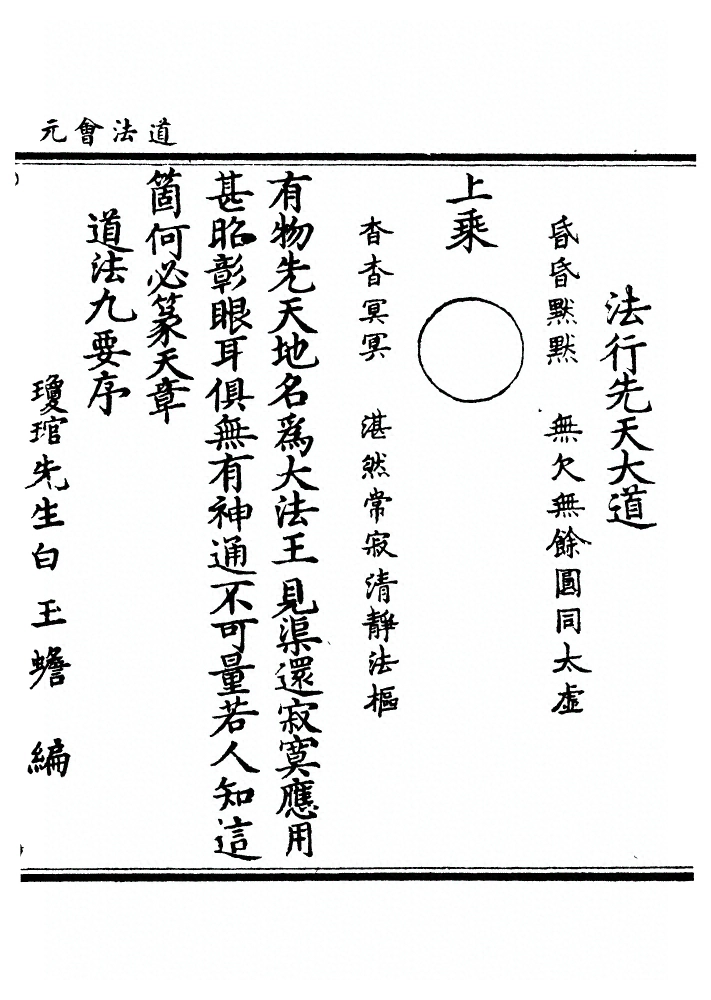 道法會元
法行先天大道
昏昏黙黙　無欠無餘圓同太虛
上乘
杳杳冥冥　湛然常寂清靜法樞
有物先天地名爲大法王見渠還寂寞應用
甚昭彰眼耳俱無有神通不可量若人知這
箇何必篆天章
道法九要序
瓊琯先生白玉蟾　編